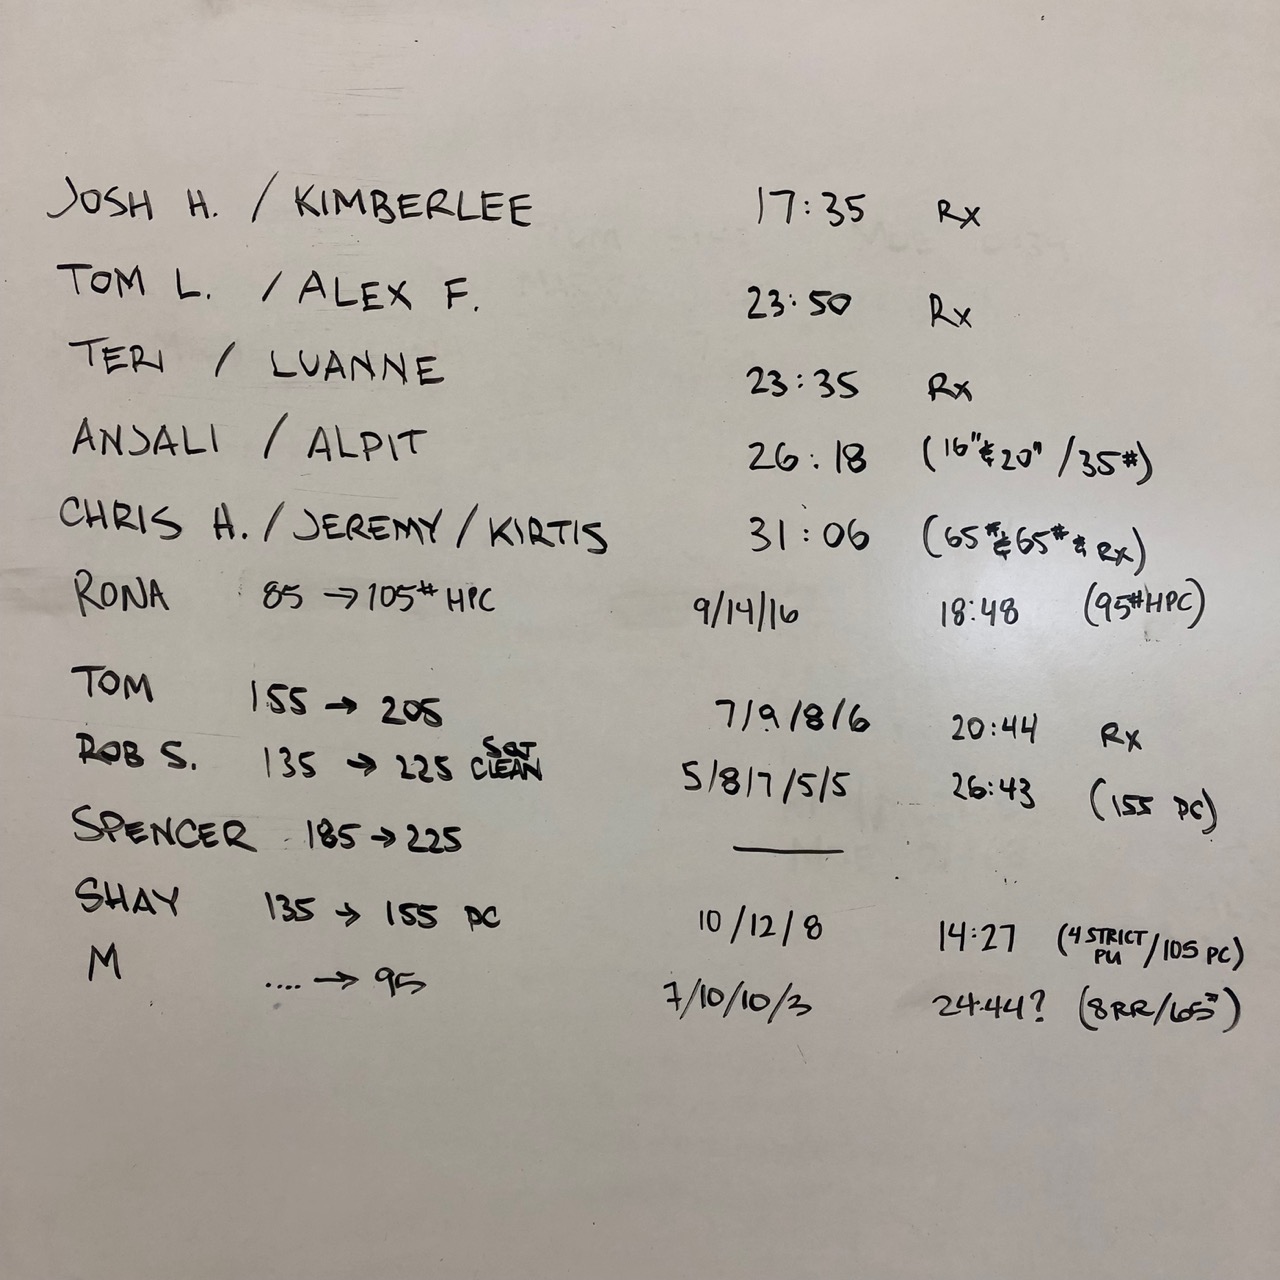 JOSH H. / KIMBERLEE 17:35 Rx
TOM L. / ALEX F. 23:50 Rx
TERI / LUANNE 23:35 Rx
ANJALI / ALPIT 26:18 (16" & 20" / 35#)
CHRIS H. / JEREMY / KIRTIS 31:06 (65# & 65# & Rx)
RONA 85 → 105# HPC 9/14/16 18:48 (95# HPC)
TOM 155 → 205 7/9/8/6 20:44 Rx
ROB S. 135 → 225 SQT CLEAN 5/8/7/5/5 26:43 (155 PC)
SPENCER 185 → 225 —
SHAY 135 → 155 PC 10/12/8 14:27 (4 STRICT PU / 105 PC)
M .... → 95 7/10/10/3 24:44? (8RR/65#)